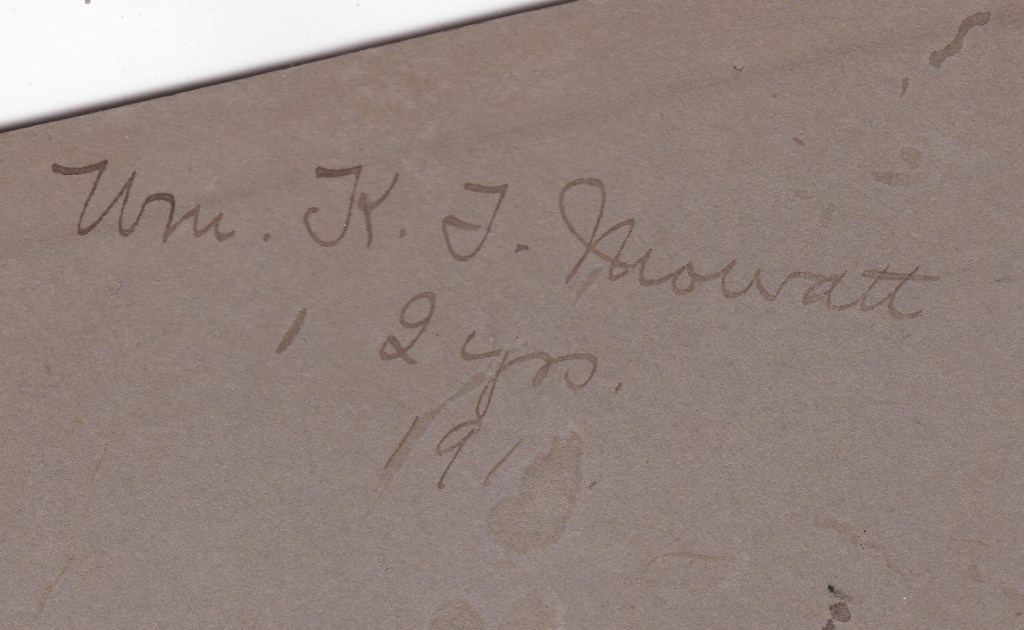 Wm. K. J. Mowatt
1 2 yrs.